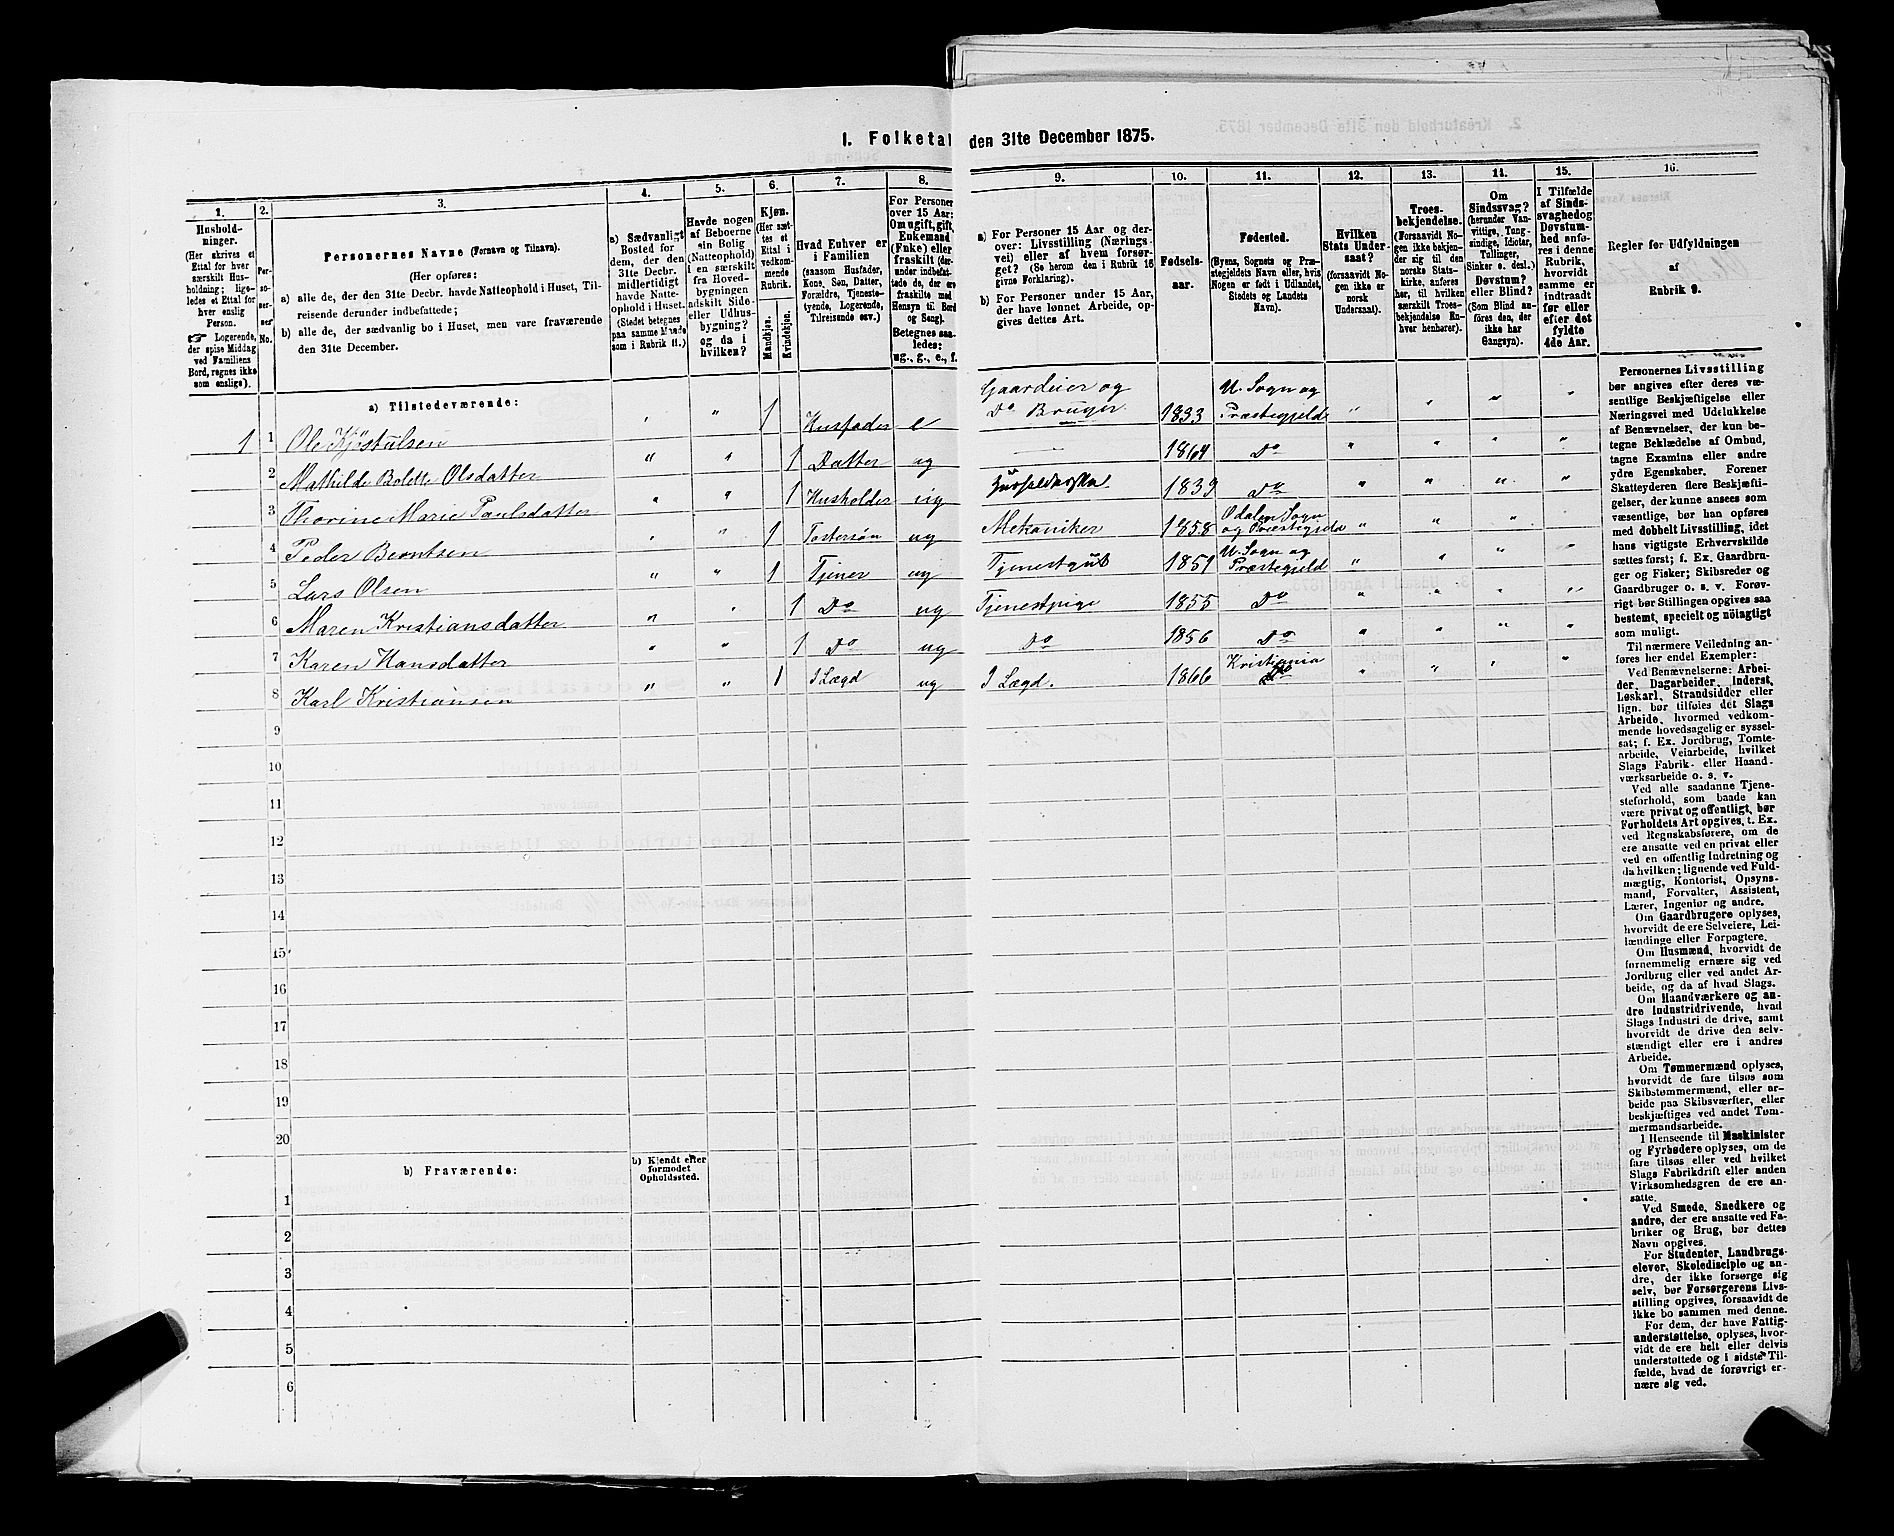 1. Folketal den 31te December 1875.
1.
2.
3.
4.
5.
6.
7.
8.
9.
10.
11.
12.
13.
14.
15.
16.
Hushold-
ninger.
(Her skrives et
Ettal for hver
særskilt Hus-
holdning; lige-
ledes et Ettal for
hver enslig
Person.
☞ Logerende,
der spise Middag
ved Familiens
Bord, regnes ikke
som enslige).
Per-
so-
ner-
nes
No.
Personernes Navne (Fornavn og Tilnavn).
(Her opføres:
a) alle de, der den 31te Decbr. havde Natteophold i Huset, Til-
reisende derunder indbefattede;
b) alle de, der sædvanlig bo i Huset, men vare fraværende
den 31te December.
a) Sædvanligt
Bosted for
dem, der den
31te Decbr.
midlertidigt
havde Natte-
ophold i Huset.
(Stedet betegnes
paa samme Maade
som i Rubrik 11.)
Havde nogen
af Beboerne
sin Bolig
(Natteophold)
i en særskilt
fra Hoved-
bygningen
adskilt Side-
eller Udhus-
bygning?
og da i
hvilken?
Kjøn.
(Her sæt-
tes et
Ettal i
vedkom-
mende
Rubrik.
Mandkjøn.
Kvindekjøn.
Hvad Enhver er
i Familien
(saasom Husfader,
Kone, Søn, Datter,
Forældre, Tjeneste-
tyende, Logerende,
Tilreisende osv.)
For Personer
over 15 Aar:
Om ugift, gift,
Enkemand
(Enke) eller
fraskilt (der-
under indbefat-
tede de, der ere
fraskilte med
Hensyn til Bord
og Seng).
Betegnes saa-
ledes:
ug., g., e., f.
a) For Personer 15 Aar og der-
over: Livsstilling (Nærings-
vei) eller af hvem forsør-
get? (Se herom den i Rubrik 16
givne Forklaring).
b) For Personer under 15 Aar,
der have lønnet Arbeide, op-
gives dettes Art.
Fødsels-
aar.
Fødested.
(Byens, Sognets og Præ-
stegjeldets Navn eller, hvis
Nogen er født i Udlandet,
Stedets og Landets
Navn).
Hvilken
Stats Under-
saat?
(forsaavidt No-
gen ikke er
norsk
Undersaat).
Troes-
bekjendelse.
(Forsaavidt No-
gen ikke bekjen-
der sig til den
norske Stats-
kirke, anføres
her, til hvilken
særskilt Troes-
bekjendelse En-
hver henhører).
Om
Sindssvag?
(herunder Van-
vittige, Tung-
sindige, Idioter,
Tullinger,
Sinker o. desl.)
Døvstum?
eller Blind?
(Som Blind an-
føres den, der
ikke har
Gangsyn).
I Tilfælde
af Sinds-
svaghed og
Døvstum-
hed anfø-
res i denne
Rubrik,
hvorvidt
samme er
indtraadt
før eller
efter det
fyldte
4de Aar.
Regler for Udfyldningen
af
Rubrik 9.
a) Tilstedeværende:
1 1 Ole Kjøstulsen " " 1 Husfader e Gaardeier og Do Bruger 1833 U. Sogn og Præstegjeld " " " "
2 Mathilde Bolette Olsdatter " " 1 Datter ug 1864 Do " " " "
3 Thorine Marie Paulsdatter " " 1 Husholder ug 1839 Do " " " "
4 Peder Berntsen " " 1 Fostersøn ug Mekaniker 1858 Odalen Sogn og Præstegjeld " " " "
5 Lars Olsen " " 1 Tjener ug Tjenestgut 1851 U. Sogn og Præstegjeld " " " "
6 Maren Kristiansdatter " " 1 Do ug Tjenestpige 1855 Do " " " "
7 Karen Hansdatter " " 1 Do ug Do 1856 Do " " " "
8 Karl Kristiansen " " 1 I Lægd ug I Lægd. 1866 Kristiania " " " "
9
10
11
12
13
14
15
16
17
18
19
20
b) Fraværende:
b) Kjendt eller
formodet
Opholdssted.
1
2
3
4
5
6
Personernes Livsstilling
bør angives efter deres væ-
sentlige Beskjæftigelse eller
Næringsvei med Udelukkelse
af Benævnelser, der kun be-
tegne Beklædelse af Ombud,
tagne Examina eller andre
ydre Egenskaber. Forener
Skatteyderen flere Beskjæfti-
gelser, der kunne ansees som
væsentlige, bør han opføres
med dobbelt Livsstilling, idet
hans vigtigste Erhvervskilde
sættes først; f. Ex. Gaardbru-
ger og Fisker; Skibsreder og
Gaardbruger o. s. v. Forøv-
rigt bør Stillingen opgives saa
bestemt, specielt og nøiagtigt
som muligt.
Til nærmere Veiledning an-
føres her endel Exempler:
Ved Benævnelserne: Arbei-
der, Dagarbeider, Inderst,
Løskarl, Strandsidder eller
lign. bør tilføies det Slags
Arbeide, hvormed vedkom-
mende hovedsagelig er syssel-
sat; f. Ex. Jordbrug, Tomte-
arbeide, Veiarbeide, hvilket
Slags Fabrik- eller Haand-
værksarbeide o. s. v.
Ved alle saadanne Tjene-
steforhold, som baade kan
være privat og offentligt, bør
Forholdets Art opgives, t. Ex.
ved Regnskabsførere, om de
ere ansatte ved en privat eller
ved en offentlig Indretning og
da hvilken; lignende ved Fuld-
mægtig, Kontorist, Opsyns-
mand, Forvalter, Assistent,
Lærer, Ingeniør og andre.
Om Gaardbrugere oplyses,
hvorvidt de ere Selveiere, Lei-
lændinge eller Forpagtere.
Om Husmænd, hvorvidt de
fornemmelig ernære sig ved
Jordbrug eller ved andet Ar-
beide, og da af hvad Slags.
Om Haandværkere og an-
dre Industridrivende, hvad
Slags Industri de drive, samt
hvorvidt de drive den selv-
stændigt eller ere i andres
Arbeide.
Om Tømmermænd oplyses,
hvorvidt de fare tilsøs som
Skibstømmermænd, eller ar-
beide paa Skibsværfter, eller
beskjæftiges ved andet Tøm-
mermandsarbeide.
I Henseende til Maskinister
og Fyrbødere oplyses, om de
fare tilsøs eller ved hvilket
Slags Fabrikdrift eller anden
Virksomhedsgren de ere an-
satte.
Ved Smede, Snedkere og
andre, der ere ansatte ved Fa-
briker og Brug, bør dettes
Navn opgives.
For Studenter, Landbrugs-
elever, Skoledisciple og an-
dre, der ikke forsørge sig
selv, bør Forsørgerens Livs-
stilling opgives, forsaavidt de
ikke bo sammen med denne.
For dem, der have Fattig-
understøttelse, oplyses, hvor-
vidt de ere helt eller delvis
understøttede og i sidste Til-
fælde, hvad de forøvrigt er-
nære sig ved.